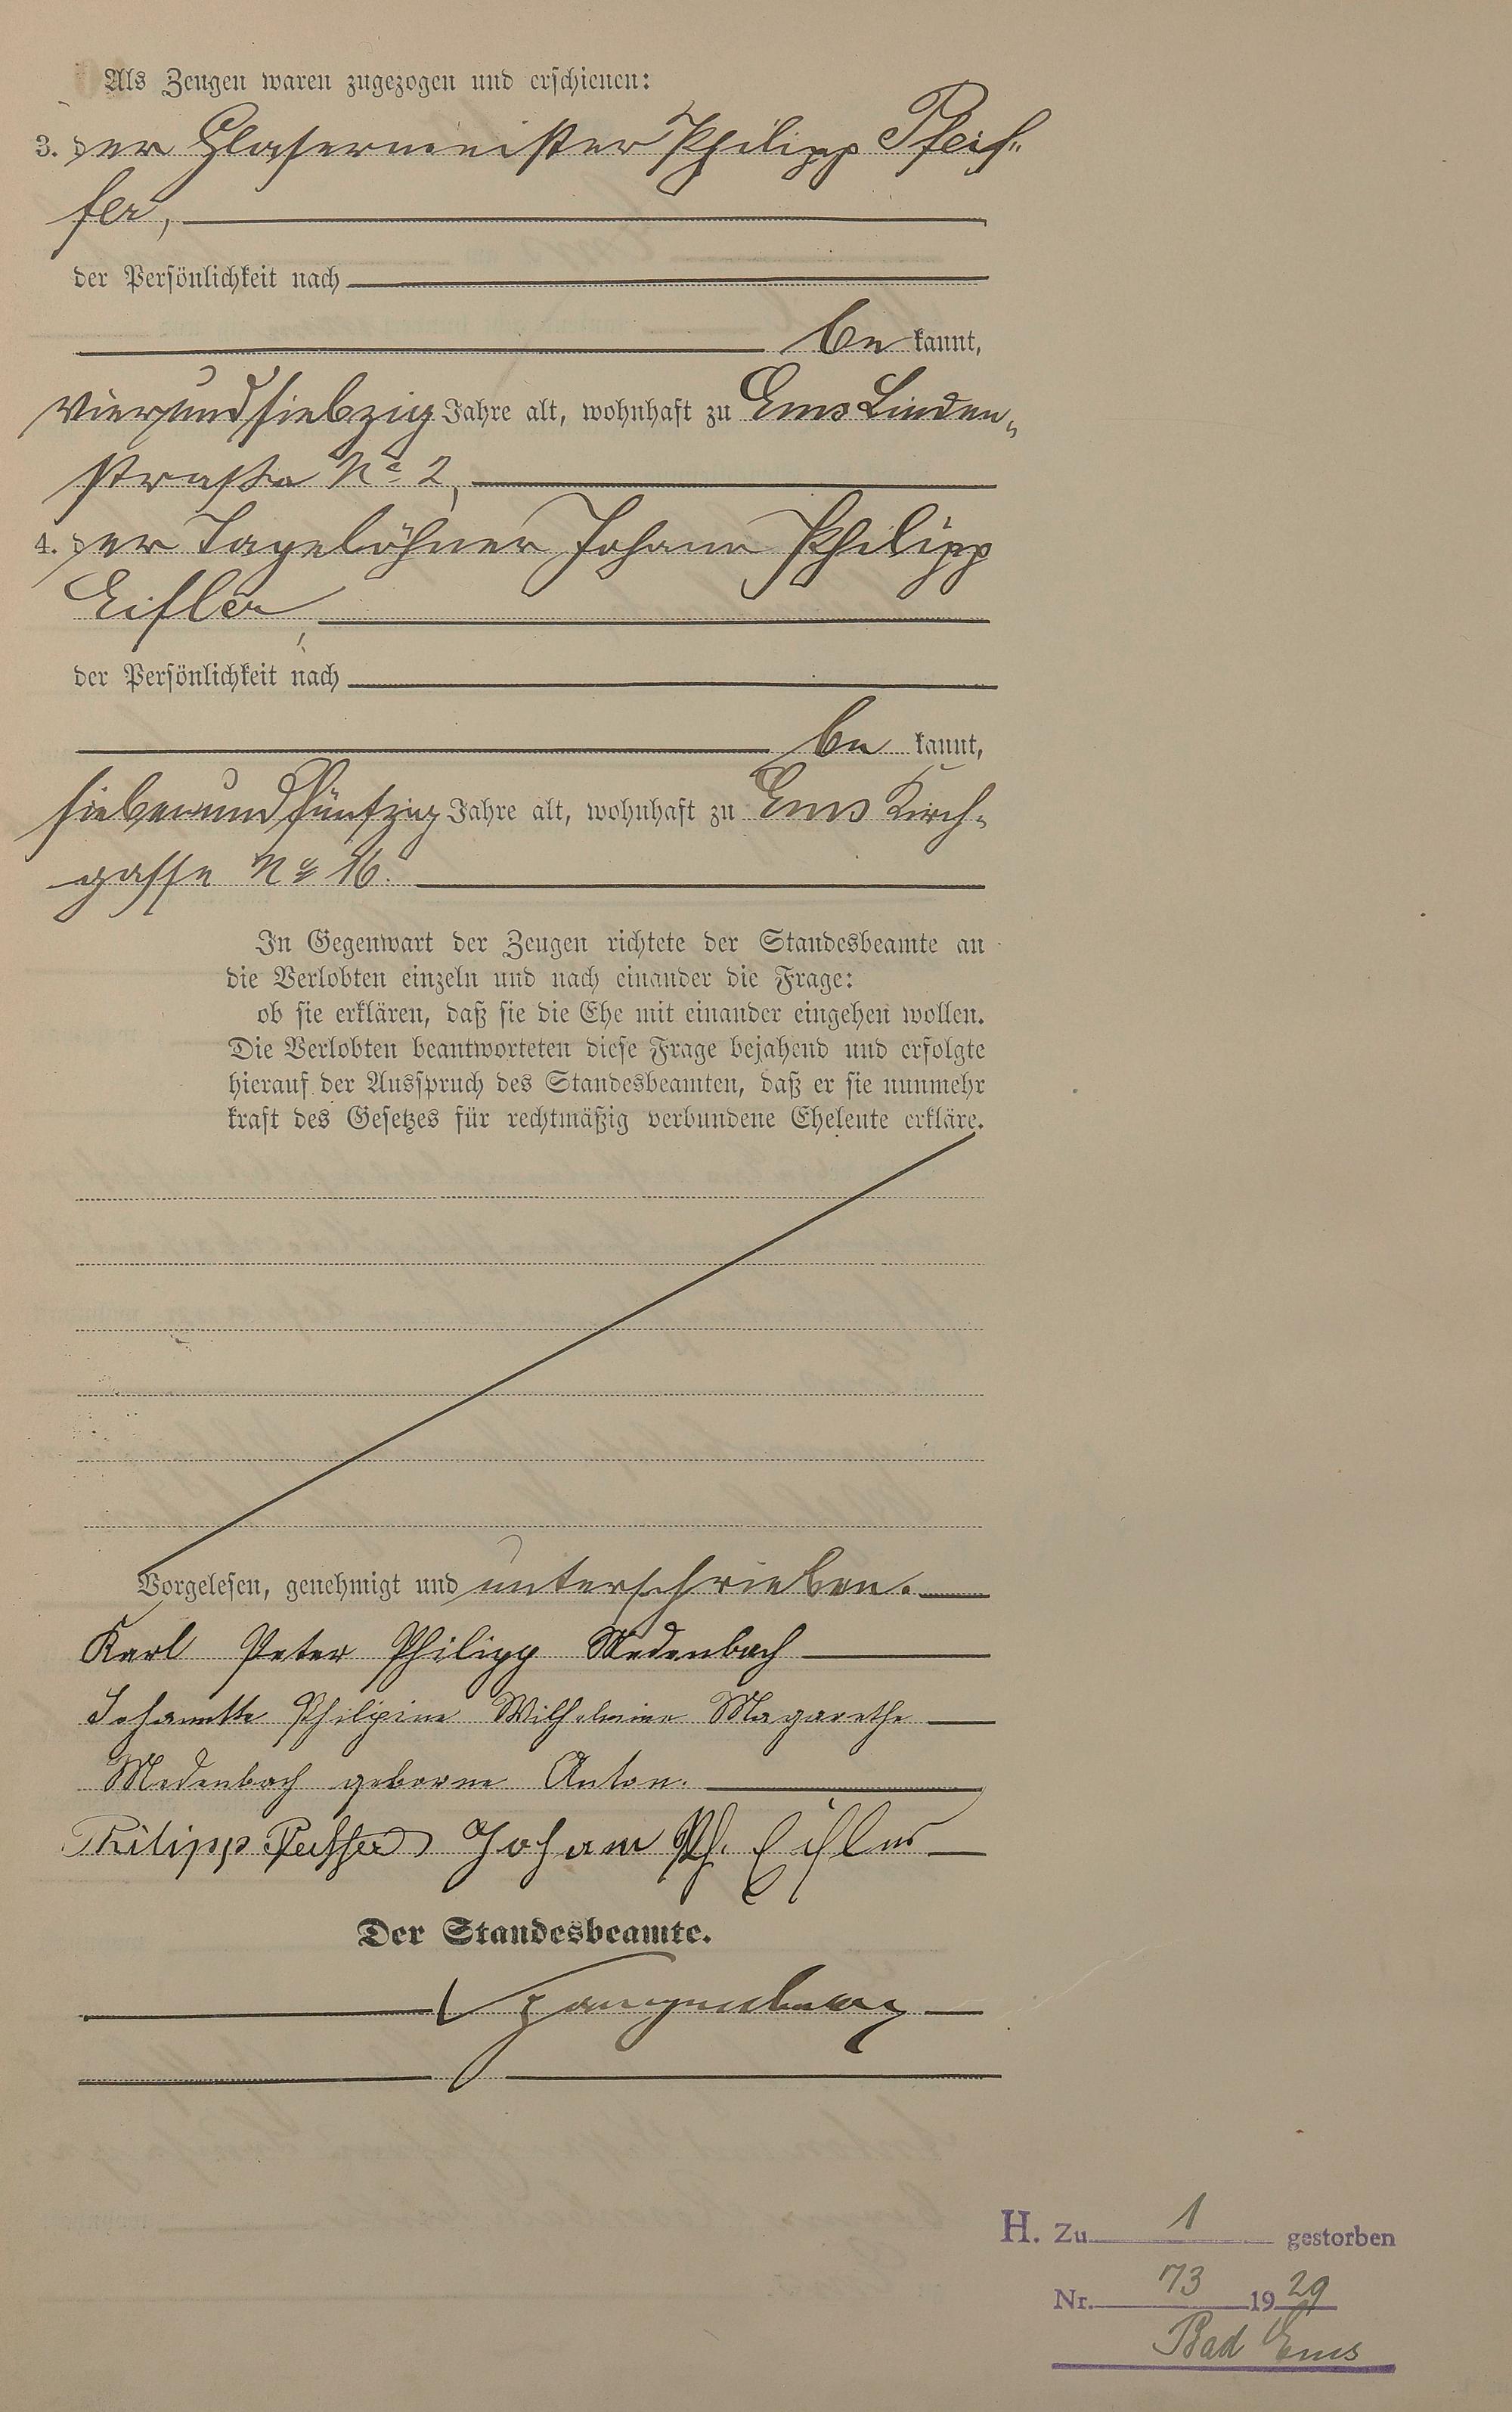 Als Zeugen waren zugezogen und erschienen:
3. der Glasermeister Philipp Pfeif-
fer,
der Persönlichkeit nach
be kannt,
vierundsiebzig Jahre alt, wohnhaft zu Ems Linden-
straße No 2,
4. der Tagelöhner Johann Philipp
Eifler,
der Persönlichkeit nach
be kannt,
siebenundfünfzig Jahre alt, wohnhaft zu Ems Kirch-
gasse No 16.
In Gegenwart der Zeugen richtete der Standesbeamte an
die Verlobten einzeln und nach einander die Frage:
ob sie erklären, daß sie die Ehe mit einander eingehen wollen.
Die Verlobten beantworteten diese Frage bejahend und erfolgte
hierauf der Ausspruch des Standesbeamten, daß er sie nunmehr
kraft des Gesetzes für rechtmäßig verbundene Eheleute erkläre.
Vorgelesen, genehmigt und unterschrieben.
Karl Peter Philipp Medenbach
Johannette Philipine Wilhelmine Magarethe
Medenbach geborne Anton.
Philipp Pfeiffer Johann Ph. Eifler
Der Standesbeamte.
H. Zu 1 gestorben
Nr. 73 1929
Bad Ems